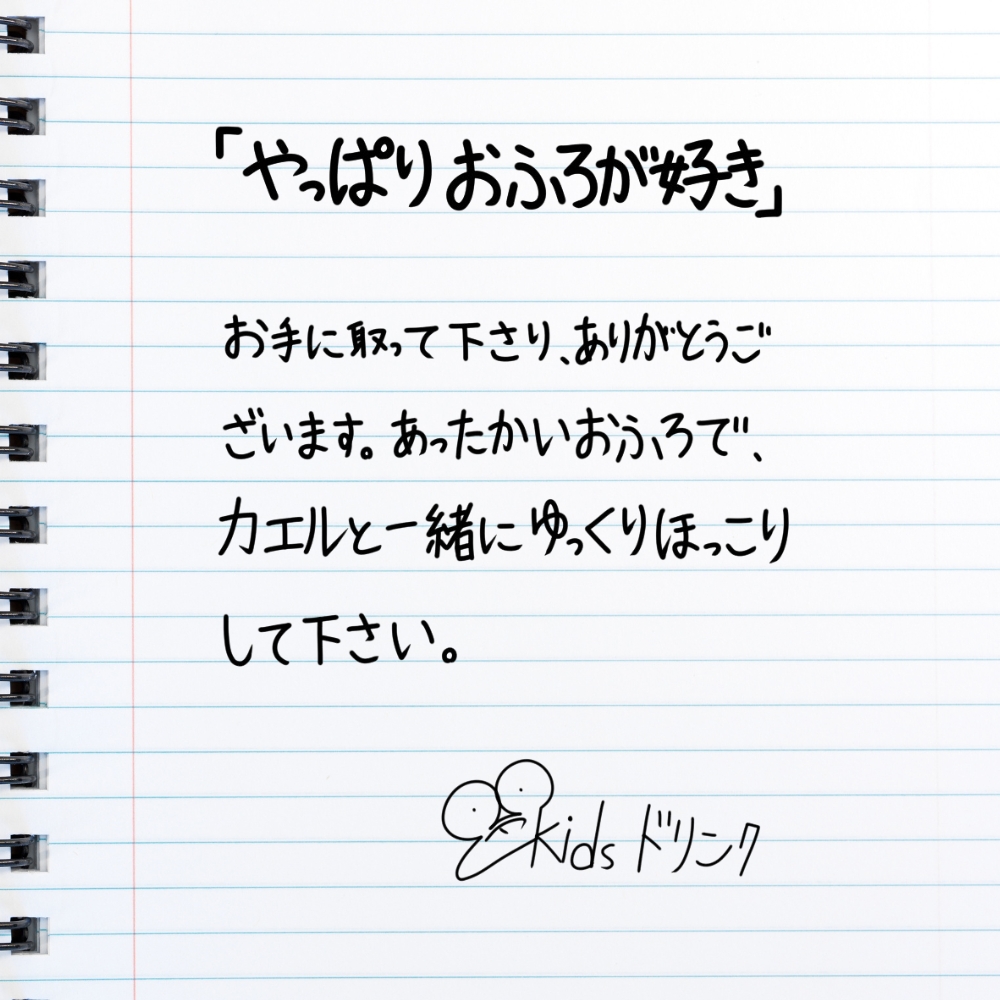 「やっぱりおふろが好き」
お手に取って下さり、ありがとうご
ざいます。あったかいおふろで、
カエルと一緒にゆっくりほっこり
して下さい。
kids ドリンク